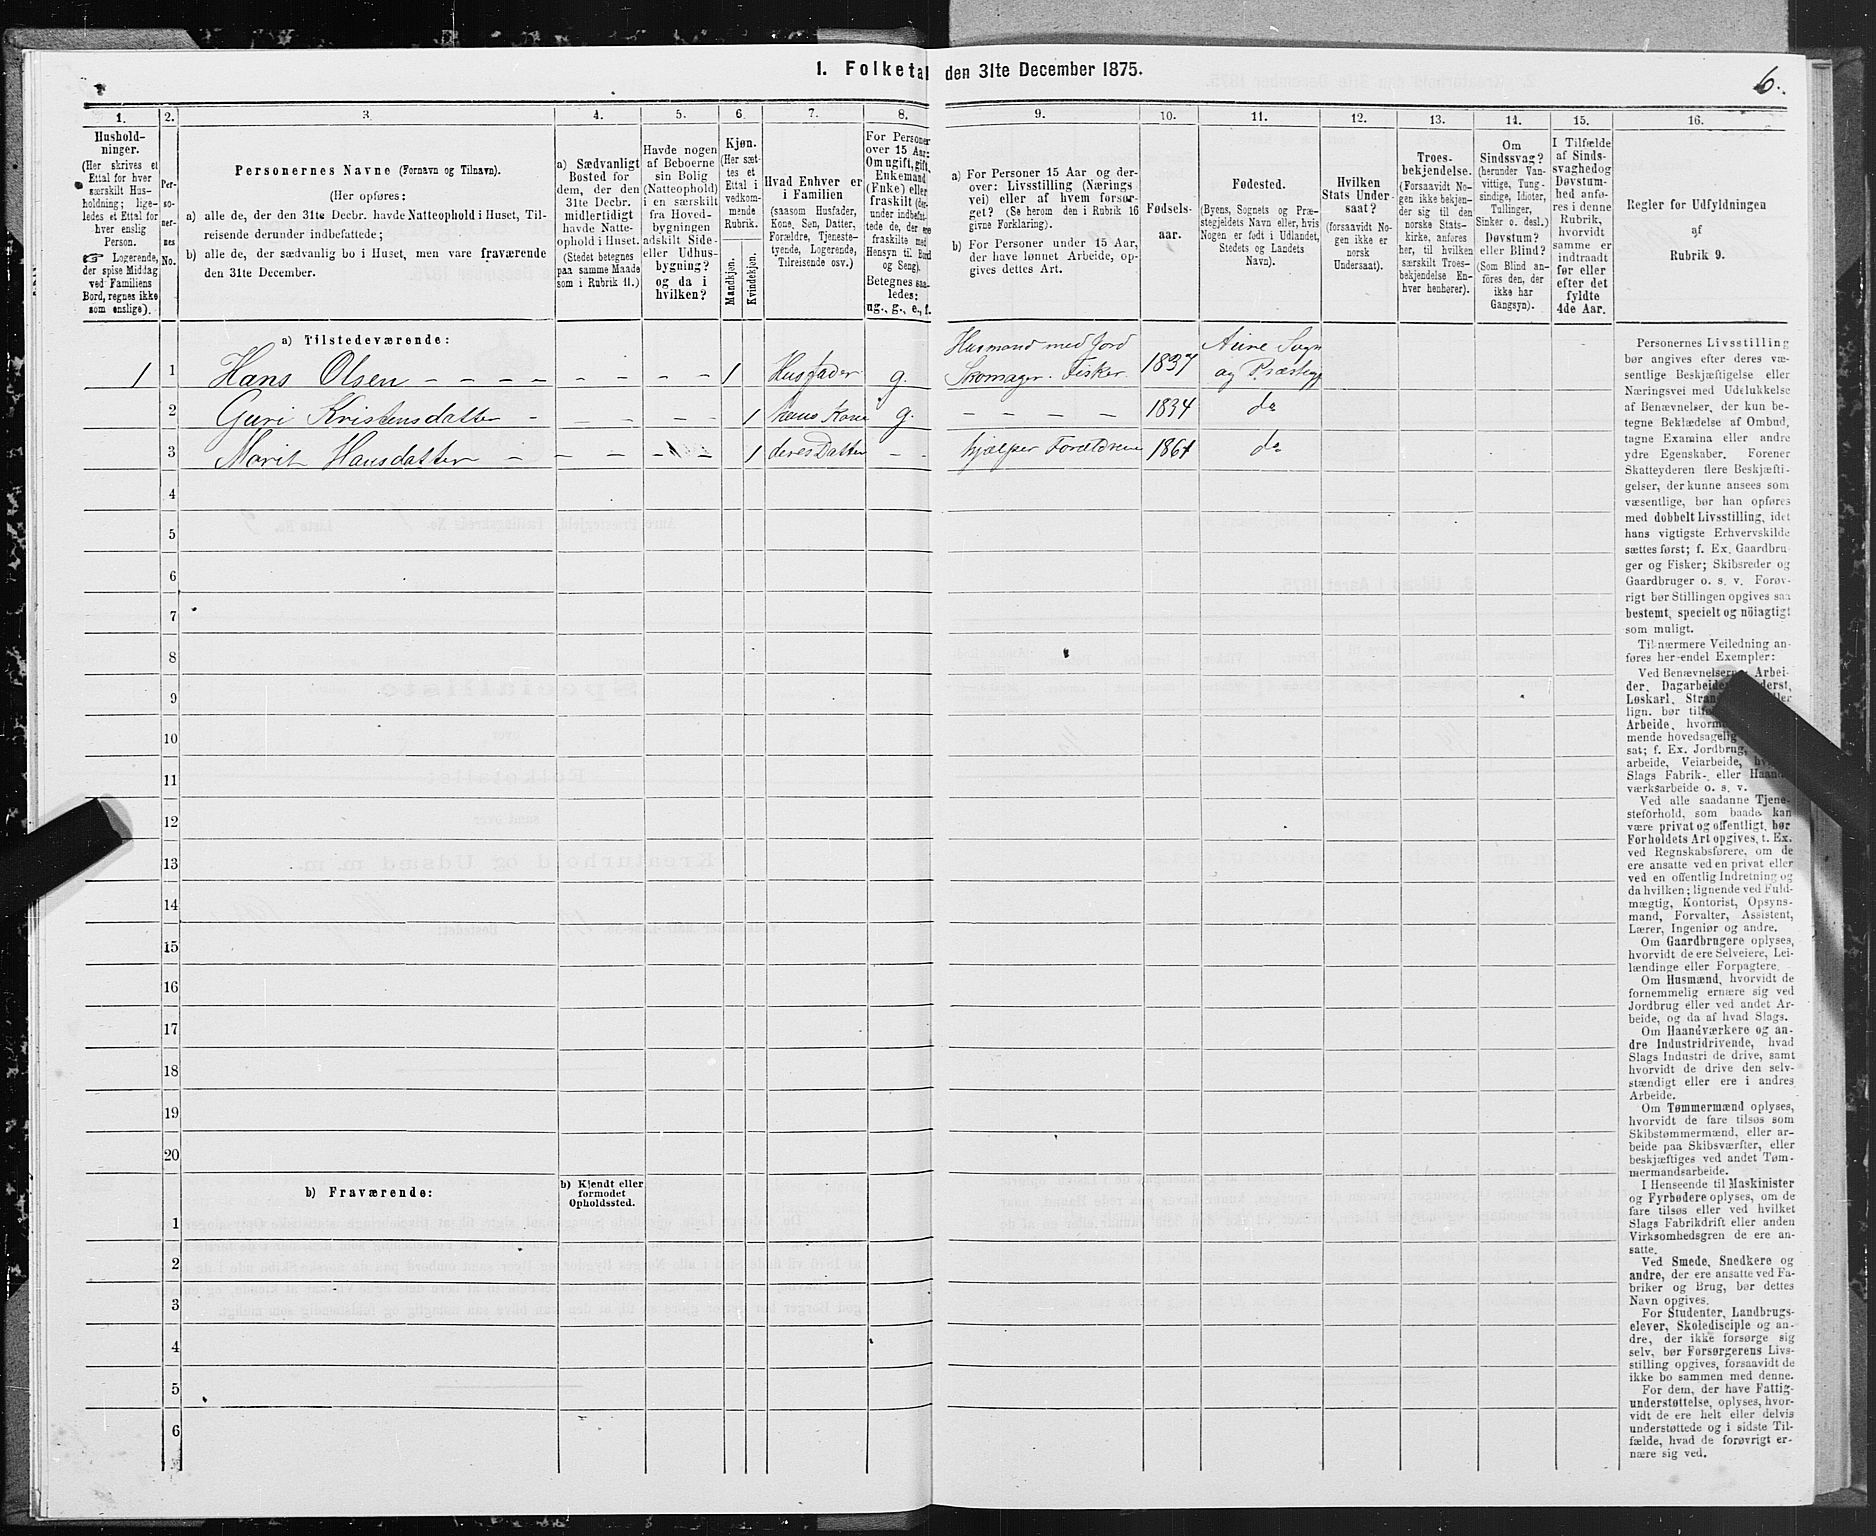 1. Folketal den 31te December 1875.
6.
1.
2.
3.
4.
5.
6.
7.
8.
9.
10.
11.
12.
13.
14.
15.
16.
Hushold-
ninger.
(Her skrives et
Ettal for hver
særskilt Hus-
holdning; lige-
ledes et Ettal for
hver enslig
Person.
☞ Logerende,
der spise Middag
ved Familiens
Bord, regnes ikke
som enslige).
Per-
so-
ner-
nes
No.
Personernes Navne (Fornavn og Tilnavn).
(Her opføres:
a) alle de, der den 31te Decbr. havde Natteophold i Huset, Til-
reisende derunder indbefattede;
b) alle de, der sædvanlig bo i Huset, men vare fraværende
den 31te December.
a) Sædvanligt
Bosted for
dem, der den
31te Decbr.
midlertidigt
havde Natte-
ophold i Huset.
(Stedet betegnes
paa samme Maade
som i Rubrik 11.)
Havde nogen
af Beboerne
sin Bolig
(Natteophold)
i en særskilt
fra Hoved-
bygningen
adskilt Side-
eller Udhus-
bygning?
og da i
hvilken?
Kjøn.
(Her sæt-
tes et
Ettal i
vedkom-
mende
Rubrik.
Mandkjøn.
Kvindekjøn.
Hvad Enhver er
i Familien
(saasom Husfader,
Kone, Søn, Datter,
Forældre, Tjeneste-
tyende, Logerende,
Tilreisende osv.)
For Personer
over 15 Aar:
Om ugift, gift,
Enkemand
(Enke) eller
fraskilt (der-
under indbefat-
tede de, der ere
fraskilte med
Hensyn til Bord
og Seng).
Betegnes saa-
ledes:
ug., g., e., f.
a) For Personer 15 Aar og der-
over: Livsstilling (Nærings
vei) eller af hvem forsør-
get? (Se herom den i Rubrik 16
givne Forklaring).
b) For Personer under 15 Aar,
der have lønnet Arbeide, op-
gives dettes Art.
Fødsels-
aar.
Fødested.
(Byens, Sognets og Præ-
stegjeldets Navn eller, hvis
Nogen er født i Udlandet,
Stedets og Landets
Navn).
Hvilken
Stats Under-
saat?
(forsaavidt No-
gen ikke er
norsk
Undersaat).
Troes-
bekjendelse.
(Forsaavidt No-
gen ikke bekjen-
der sig til den
norske Stats-
kirke, anføres
her, til hvilken
særskilt Troes-
bekjendelse En-
hver henhører).
Om
Sindssvag?
(herunder Van-
vittige, Tung-
sindige, Idioter,
Tullinger,
Sinker o. desl.)
Døvstum?
eller Blind?
(Som Blind an-
føres den, der
ikke har
Gangsyn).
I Tilfælde
af Sinds-
svaghed og
Døvstum-
hed anfø-
res i denne
Rubrik,
hvorvidt
samme er
indtraadt
før eller
efter det
fyldte
4de Aar.
Regler for Udfyldningen
af
Rubrik 9.
a) Tilstedeværende:
1 1 Hans Olsen – – – – – – – 1 Husfader g. Husmand med Jord Skomager. Fisker 1837 Aure Sogn og Præstegj
2 Guri Kristensdatter – – – – – 1 hans Kone g. – – – – 1834 do
3 Marit Hansdatter – – – – – 1 deres Datter – – hjælper Forældrene 1861 do
4
5
6
7
8
9
10
11
12
13
14
15
16
17
18
19
20
b) Fraværende:
b) Kjendt eller
formodet
Opholdssted.
1
2
3
4
5
6
Personernes Livsstilling
bør angives efter deres væ-
sentlige Beskjæftigelse eller
Næringsvei med Udelukkelse
af Benævnelser, der kun be-
tegne Beklædelse af Ombud,
tagne Examina eller andre
ydre Egenskaber. Forener
Skatteyderen flere Beskjæfti-
gelser, der kunne ansees som
væsentlige, bør han opføres
med dobbelt Livsstilling, idet
hans vigtigste Erhvervskilde
sættes først; f. Ex. Gaardbru-
ger og Fisker; Skibsreder og
Gaardbruger o. s. v. Forøv-
rigt bør Stillingen opgives saa
bestemt, specielt og nöiagtigt
som muligt.
Til nærmere Veiledning an-
føres her endel Exempler:
Ved Benævnelserne Arbei-
der, Dagarbeider,
Løskarl,
lign. bør
Arbeide,
mende hovedsagelig
sat; f. Ex. Jordbrug,
arbeide, Veiarbeide,
Slags Fabrik- eller Haand-
værksarbeide o. s. v.
Ved alle saadanne Tjene-
steforhold, som baade kan
være privat og offentligt, bør
Forholdets Art opgives, t. Ex.
ved Regnskabsførere, om de
ere ansatte ved en privat eller
ved en offentlig Indretning og
da hvilken; lignende ved Fuld-
mægtig, Kontorist, Opsyns-
mand, Forvalter, Assistent,
Lærer, Ingeniør og andre.
Om Gaardbrugere oplyses,
hvorvidt de ere Selveiere, Lei-
lændinge eller Forpagtere.
Om Husmænd, hvorvidt de
fornemmelig ernære sig ved
Jordbrug eller ved andet Ar-
beide, og da af hvad Slags.
Om Haandværkere og an-
dre Industridrivende, hvad
Slags Industri de drive, samt
hvorvidt de drive den selv-
stændigt eller ere i andres
Arbeide.
Om Tømmermænd oplyses,
hvorvidt de fare tilsøs som
Skibstømmermænd, eller ar-
beide paa Skibsværfter, eller
beskjæftiges ved andet Tøm-
mermandsarbeide.
I Henseende til Maskinister
og Fyrbødere oplyses, om de
fare tilsøs eller ved hvilket
Slags Fabrikdrift eller anden
Virksomhedsgren de ere an-
satte.
Ved Smede, Snedkere og
andre, der ere ansatte ved Fa-
briker og Brug, bør dettes
Navn opgives.
For Studenter, Landbrugs-
elever, Skoledisciple og an-
dre, der ikke forsørge sig
selv, bør Forsørgerens Livs-
stilling opgives, forsaavidt de
ikke bo sammen med denne.
For dem, der have Fattig-
understøttelse, oplyses, hvor-
vidt de ere helt eller delvis
understøttede og i sidste Til-
fælde, hvad de forøvrigt er-
nære sig ved.